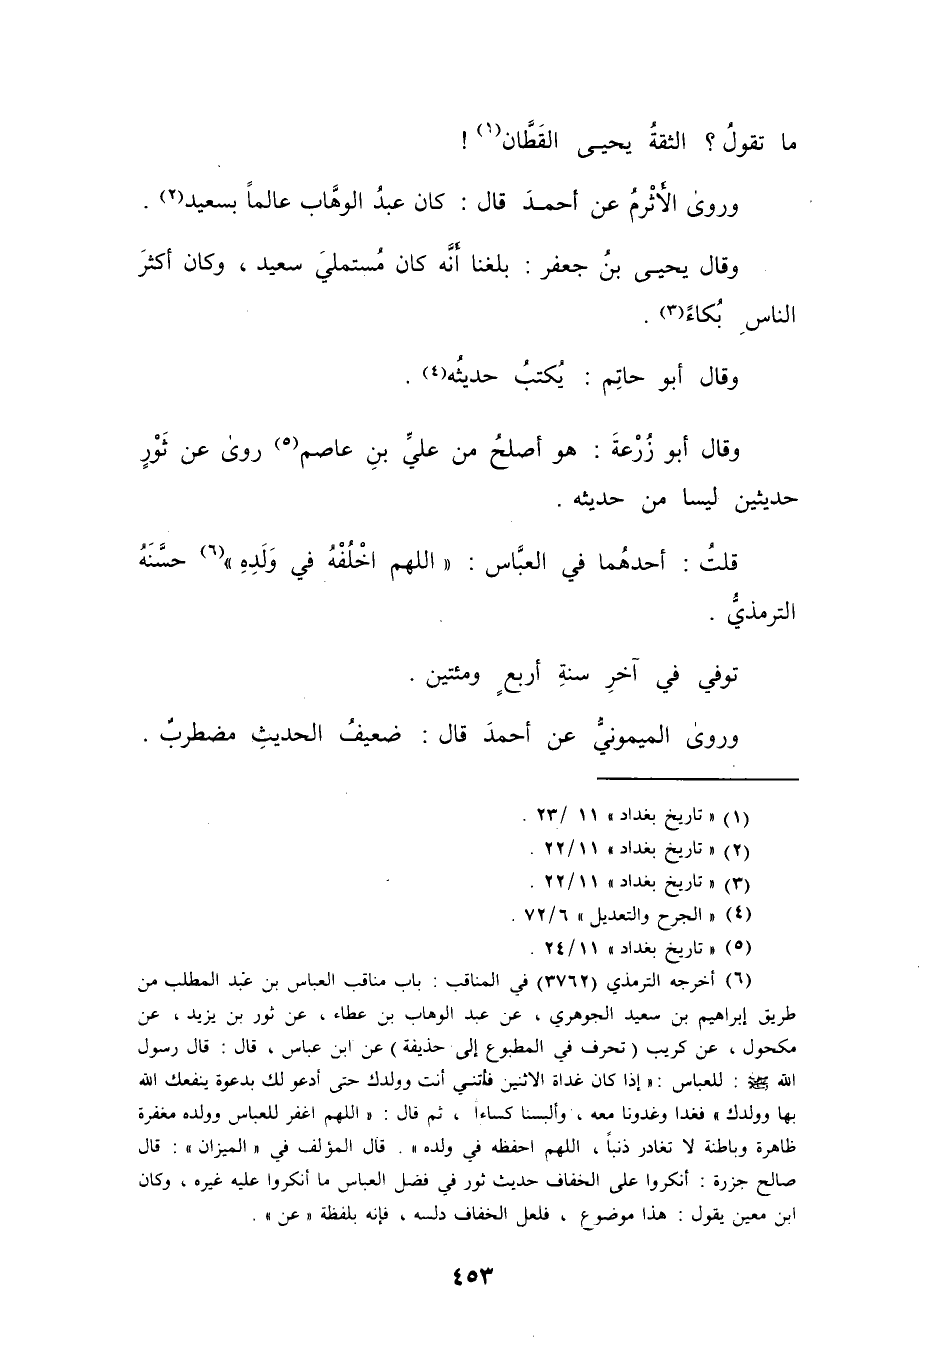 ما تقولُ ؟ الثقةُ يحيـى القَطَّان(١) !
وروىٰ الأَثْرمُ عن أحمـدَ قال : كان عبدُ الوهَّاب عالماً بسعيد(٢) .
وقال يحيـى بنُ جعفر : بلغنا أنَّه كان مُستمليَ سعيد ، وكان أكثرَ
الناسِ بُكاءً(٣) .
وقال أبو حاتِم : يُكتبُ حديثُه(٤) .
وقال أبو زُرْعةَ : هو أصلحُ من عليِّ بنِ عاصم(٥) روىٰ عن ثَوْرٍ
حديثين ليسا من حديثه .
قلتُ : أحدهُما في العبَّاس : « اللهم اخْلُفْهُ في وَلَدِهِ »(٦) حسَّنَهُ
الترمذيُّ .
توفي في آخرِ سنةِ أربعٍ ومئتين .
وروىٰ الميمونيُّ عن أحمدَ قال : ضعيفُ الحديثِ مضطربٌ .
(١) « تاريخ بغداد » ١١ /٢٣ .
(٢) « تاريخ بغداد » ٢٢/١١ .
(٣) « تاريخ بغداد » ٢٢/١١ .
(٤) « الجرح والتعديل » ٧٢/٦ .
(٥) « تاريخ بغداد » ٢٤/١١ .
(٦) أخرجه الترمذي (٣٧٦٢) في المناقب : باب مناقب العباس بن عبد المطلب من
طريق إبراهيم بن سعيد الجوهري ، عن عبد الوهاب بن عطاء ، عن ثور بن يزيد ، عن
مكحول ، عن كريب ( تحرف في المطبوع إلى حذيفة ) عن ابن عباس ، قال : قال رسول
الله ﷺ : للعباس : « إذا كان غداة الاثنين فأتني أنت وولدك حتى أدعو لك بدعوة ينفعك الله
بها وولدك » فغدا وغدونا معه ، وألبسنا كساءاً ، ثم قال : « اللهم اغفر للعباس وولده مغفرة
ظاهرة وباطنة لا تغادر ذنباً ، اللهم احفظه في ولده » . قال المؤلف في « الميزان » : قال
صالح جزرة : أنكروا على الخفاف حديث ثور في فضل العباس ما أنكروا عليه غيره ، وكان
ابن معين يقول : هذا موضوع ، فلعل الخفاف دلسه ، فإنه بلفظة « عن » .
٤٥٣